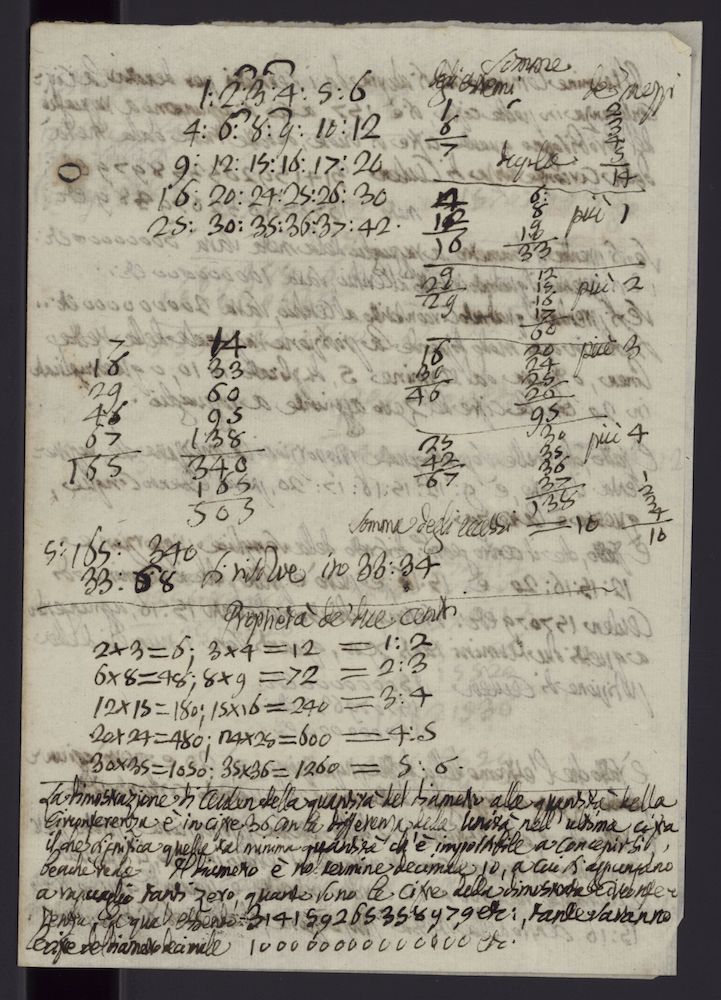 Somme
degli estremi de' mezzi
1 : 2 : 3 : 4 : 5 : 6
4 : 6 : 8 : 9 : 10 : 12
9 : 12 : 15 : 16 : 17 : 20
16 : 20 : 24 : 25 : 26 : 30
25 : 30 : 35 : 36 : 37 : 42
1
6
7
2
3
4
5
14
4
12
16
6
8
9
10
33
più 1
9
20
29
12
15
16
17
60
più 2
16
30
46
20
24
25
26
95
più 3
25
42
67
30
35
36
37
138
più 4
7
16
29
46
67
165
14
33
60
95
138
340
165
505
1
2
3
4
10
Somma degli eccessi = 10
5 : 165 : 340
33 : 68 si risolve in 33 : 34
Proprietà de' due centi
2 x 3 = 6 ; 3 x 4 = 12 = 1 : 2
6 x 8 = 48 ; 8 x 9 = 72 = 2 : 3
12 x 15 = 180 ; 15 x 16 = 240 = 3 : 4
20 x 24 = 480 ; 24 x 25 = 600 = 4 : 5
30 x 35 = 1050 ; 35 x 36 = 1260 = 5 : 6
La dimostrazione di Ceulen della quantità del diametro alla quantità della
circonferenza è in cifre 36 con la differenza della unità nell' ultima cifra
il che significa quella tal minima quantità ch' è impossibile a concepirsi,
benchè reale. Il diametro è nel termine decimale 10, a cui s' aggiungano
a ragguaglio tanti zero, quante sono le cifre della dimostrata circonfe-
renza, la qual essendo = 314159265358979 etc:, tante saranno
le cifre del diametro decimale 1000000000000000 etc.